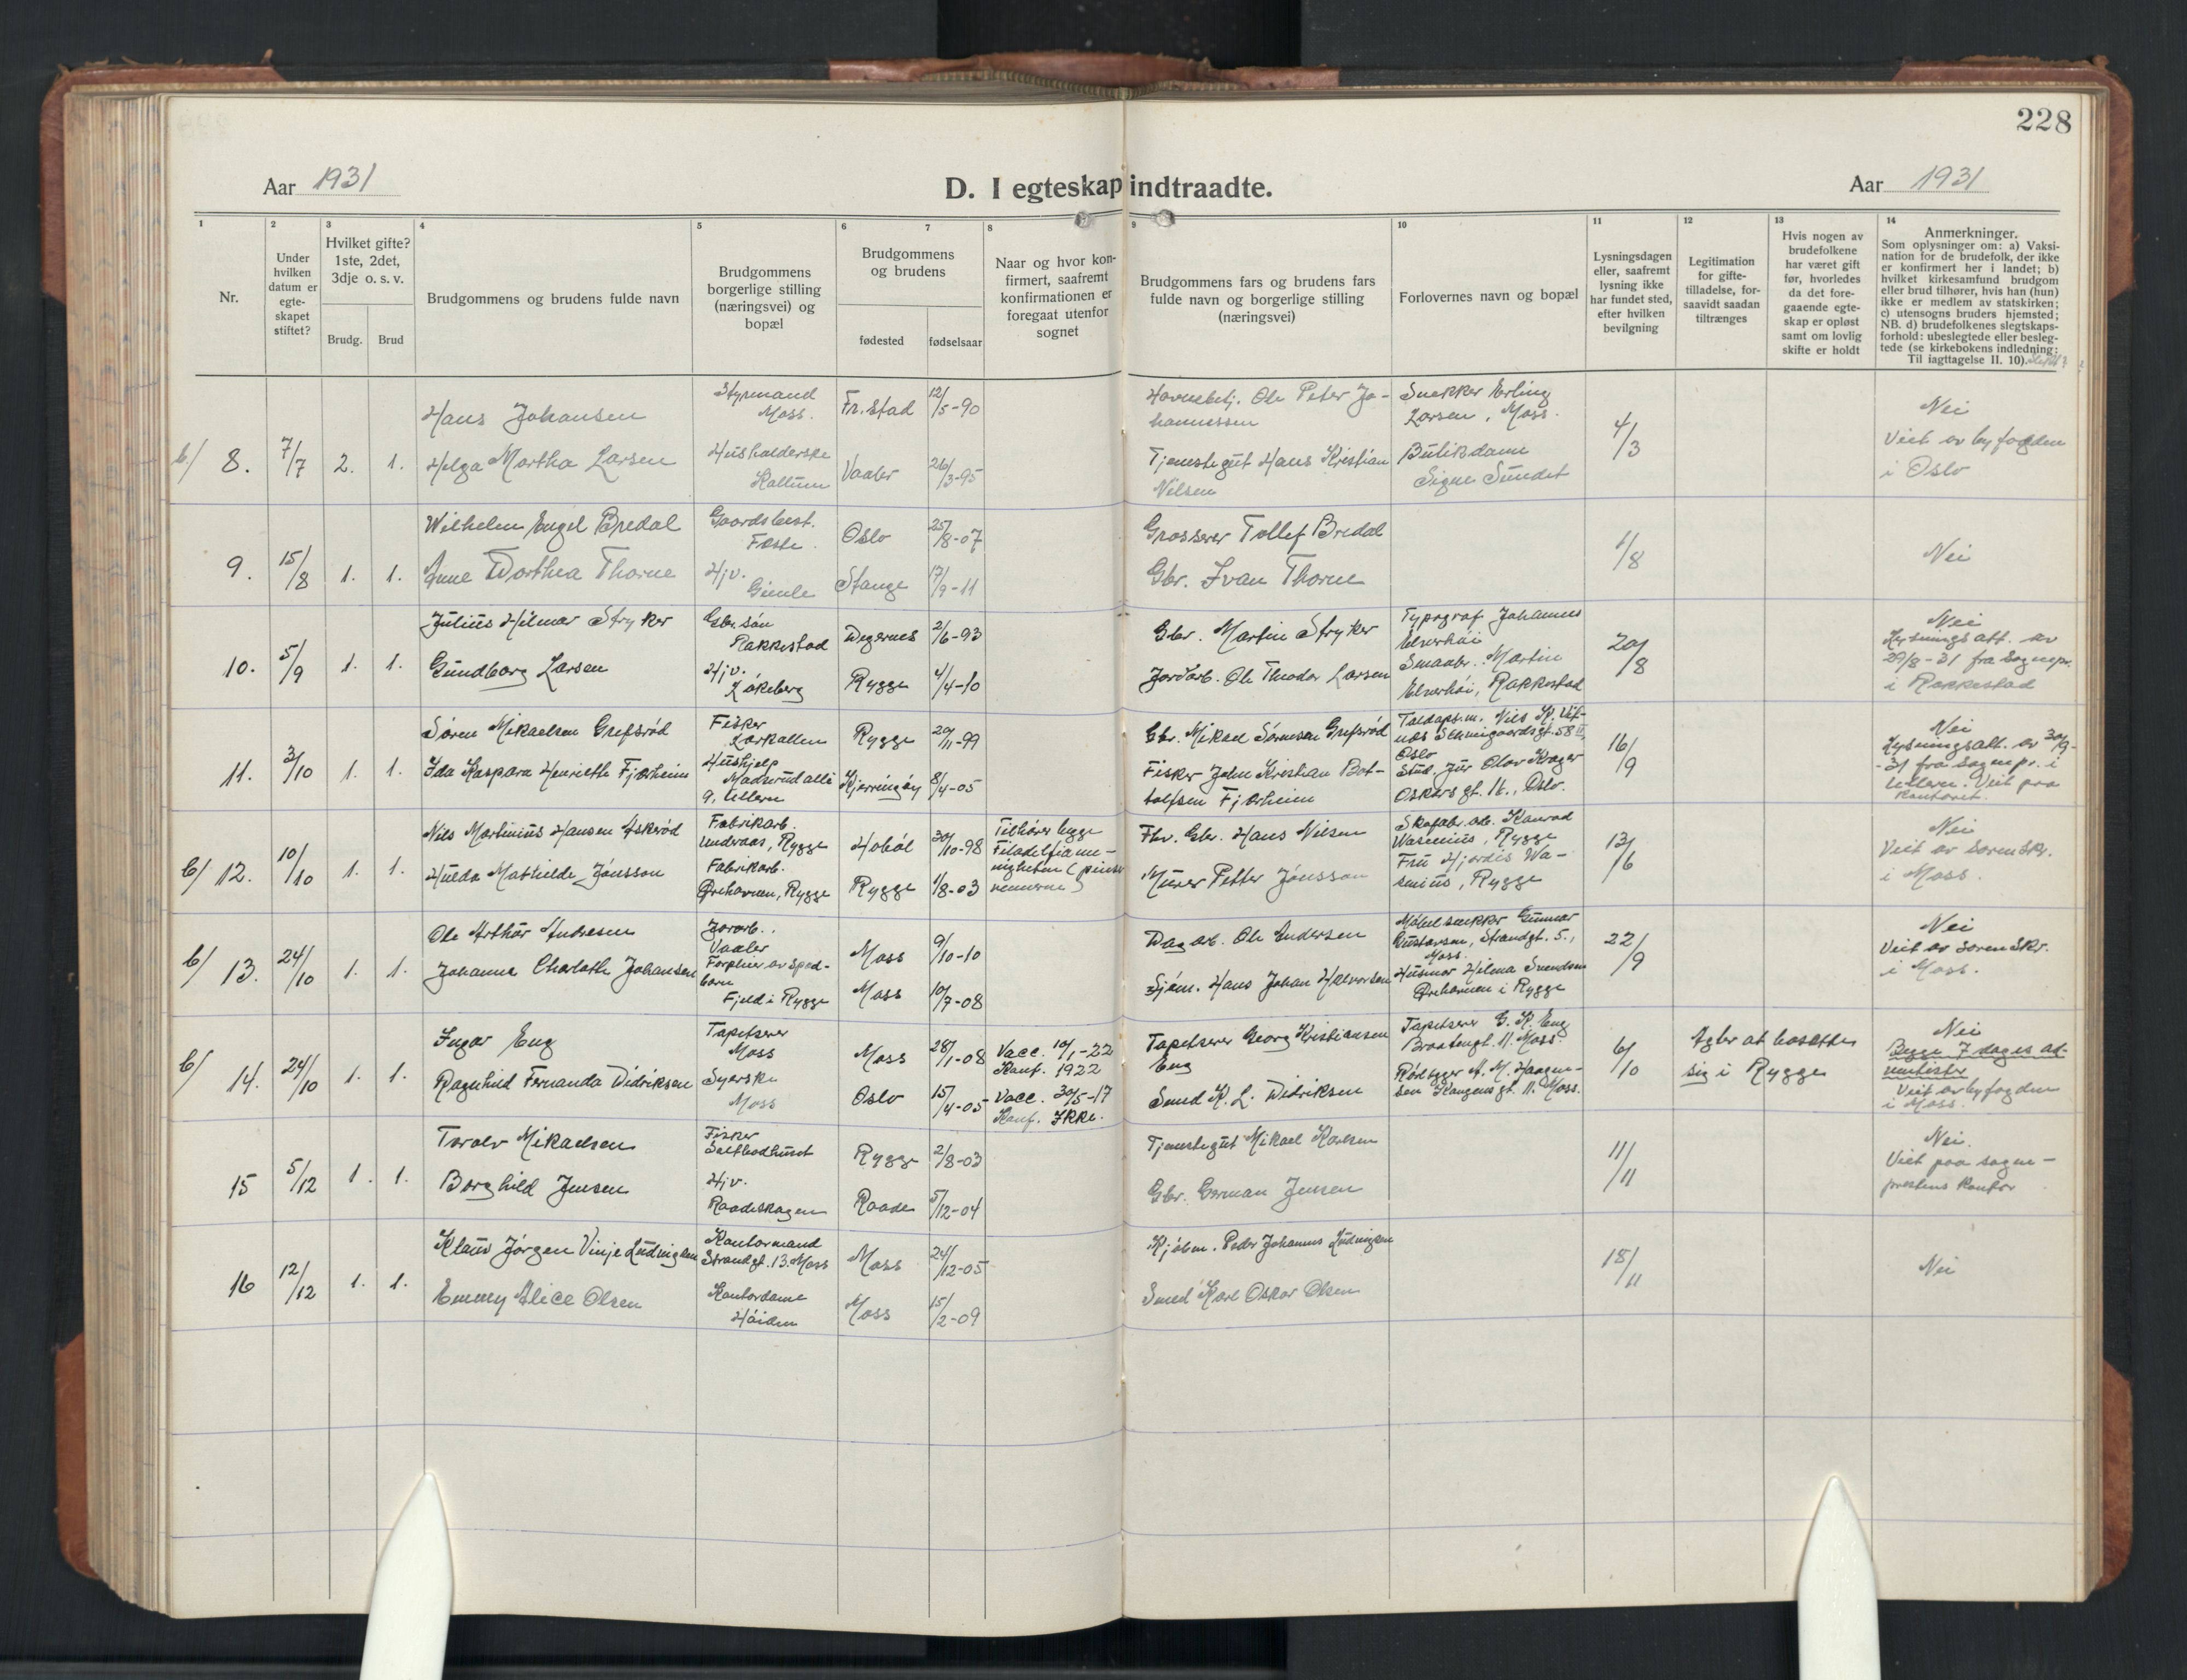 228
Aar 1931
D. I egteskap indtraadte.
Aar 1931
1
2
3
4
5
6
7
8
9
10
11
12
13
14
Nr.
Under hvilken datum er egte-skapet stiftet?
Hvilket gifte? 1ste, 2det, 3dje o. s. v.
Brudg.
Brud
Brudgommens og brudens fulde navn
Brudgommens borgerlige stilling (næringsvei) og bopæl
Brudgommens og brudens
fødested
fødselsaar
Naar og hvor kon-firmert, saafremt konfirmationen er foregaat utenfor sognet
Brudgommens fars og brudens fars fulde navn og borgerlige stilling (næringsvei)
Forlovernes navn og bopæl
Lysningsdagen eller, saafremt lysning ikke har fundet sted, efter hvilken bevilgning
Legitimation for gifte-tilladelse, for-saavidt saadan tiltrænges
Hvis nogen av brudefolkene har været gift før, hvorledes da det fore-gaaende egte-skap er opløst samt om lovlig skifte er holdt
Anmerkninger.
Som oplysninger om: a) Vaksi-nation for de brudefolk, der ikke er konfirmert her i landet; b) hvilket kirkesamfund brudgom eller brud tilhører, hvis han (hun) ikke er medlem av statskirken; c) utensogns bruders hjemsted; NB. d) brudefolkenes slegtskaps-forhold: ubeslegtede eller besleg-tede (se kirkebokens indledning: Til iagttagelse II. 10).
b/ 8. 7/7 2. 1.
Hans Johansen
Styrmand
Moss.
Fr.stad 12/5-90
Havnebetj. Ole Peter Jo-
hannessen
Snekker Erling
Larsen, Moss.
Helga Martha Larsen
Husholderske
Kallum
Vaaler 26/3-95
Tjenestegut Hans Kristian
Nilsen
Butikdame
Signe Sundet
4/3
Nei
Viet av byfogden
i Oslo
9. 15/8 1. 1.
Wilhelm Engel Bredal
Gaardsbest.
Oslo 25/8-07
Grosserer Tollef Bredal
Anne Dorthea Thorne
Hjv.
Gimle
Stange 17/9-11
Gbr. Ivan Thorne
1/8
Nei
10. 5/9 1. 1.
Julius Hilmar Stryker
Gbr.søn
Rakkestad
Degernes 2/6-93
Gbr. Martin Stryker
Typograf Johannes
Elverhøi
Gundborg Larsen
Hjv.
Løkeberg
Rygge 4/4-10
Jordarb. Ole Theodor Larsen
Smaabr. Martin
Elverhøi, Rakkestad
20/8
Nei
Lysningsatt. av
29/8-31 fra Sognepr.
i Rakkestad
11. 3/10 1. 1.
Søren Mikaelsen Grefsrød
Fisker
Larkollen
Rygge 20/11-99
Gbr. Mikael Sørensen Grefsrød
Ida Kaspara Henriette Fjærheim
Hushjelp
Madserud allé
9, Ullern
Kjerringøy 8/4-05
Fisker John Kristian Bot-
tolfsen Fjærheim
Oslo
Stud. jur Olav Krager
Oskars gt. 11., Oslo.
16/9
Nei
Lysningsatt. av 30/9-
-31 fra sognepr. i
Ullern. Viet paa
kontoret.
b/ 12. 10/10 1. 1.
Nils Martinius Hansen Askerød
Fabrikarb.
Rygge
Hobøl 30/10-98
Tilhører begge
Filadelfiame-
nigheten (pinse
vennerne)
Fhv. Gbr. Hans Nilsen
Skofabr.arb. Konrad
Wasenius, Rygge
Hulda Mathilde Jónsson
Fabrikarb.
Ørehavnen, Rygge
Rygge 1/8-03
Murer Petter Jónsson
Fru Hjørdis Wa-
senius, Rygge
13/6
Nei
Viet av Sorenskr.
i Moss.
b/ 13. 24/10 1. 1.
Ole Arthur Andresen
Jordarb.,
Vaaler
Moss 9/10-10
Dagarb. Ole Andersen
Møbelsnekker Gunnar
Gustavsen, Strandgt. 5.,
Moss.
Johanne Charlotte Johansen
Forpleier av sped-
barn
Fjeld i Rygge
Moss 10/7-08
Sjøm. Hans Johan Halvorsen
Husmor Hilma Svendsen
Ørehavnen i Rygge
22/9
Nei
Viet av Sorenskr.
i Moss.
b/ 14. 24/10 1. 1.
Ingar Eng
Tapetserer
Moss
Moss 28/1-08
Vacc. 10/1-22
Konf. 1922
Tapetserer Georg Kristiansen
Eng
Tapetserer G. K. Eng
Braatengt. 11. Moss.
Ragnhild Fernanda Didriksen
Syerske
Moss
Oslo 15/4-05
Vacc. 30/5-17
Konf. Ikke.
Smed K. L. Didriksen
Rørlegger A. M. Haagen-
sen Kongens gt. 11. Moss.
6/10
Agter at bosætte
sig i Rygge
Nei
Begge 7 dages ad-
ventister
Viet av byfogden
i Moss.
15 5/12 1. 1.
Torolv Mikaelsen
Fisker
Saltbodhuset
Rygge 2/8-03
Tjenestegut Mikael Karlsen
Borghild Jensen
Hjv.
Raadeskogen
Raade 5/12-04
Gbr. Herman Jensen
11/11
Nei.
Viet paa sogne-
prestens kontor
16 12/12 1. 1.
Klaus Jørgen Vinje Ludvigsen
Kontormand
Strandgt. 13. Moss
Moss 24/12-05
Kjøbm. Peder Johannes Ludvigsen
Emmy Alice Olsen
Kontordame
Høiden
Moss 15/2-09
Smed Karl Oskar Olsen
18/11
Nei